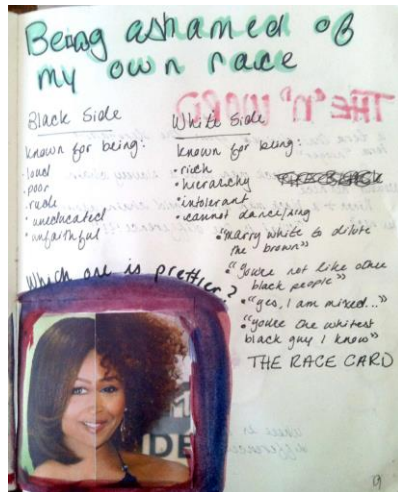 Being ashamed of
my own race
THE "N" WORD
Black Side
known for being:
· loud
· poor
· rude
· uneducated
· unfaithful
White Side
known for being:
· rich
· hierarchy
· intolerant
· cannot dance/sing
· "marry white to dilute
the brown"
· "you're not like other
black people"
· "yes, I am mixed..."
· "you're the whitest
black guy I know"
THE RACE CARD
Which one is prettier?
DE
9